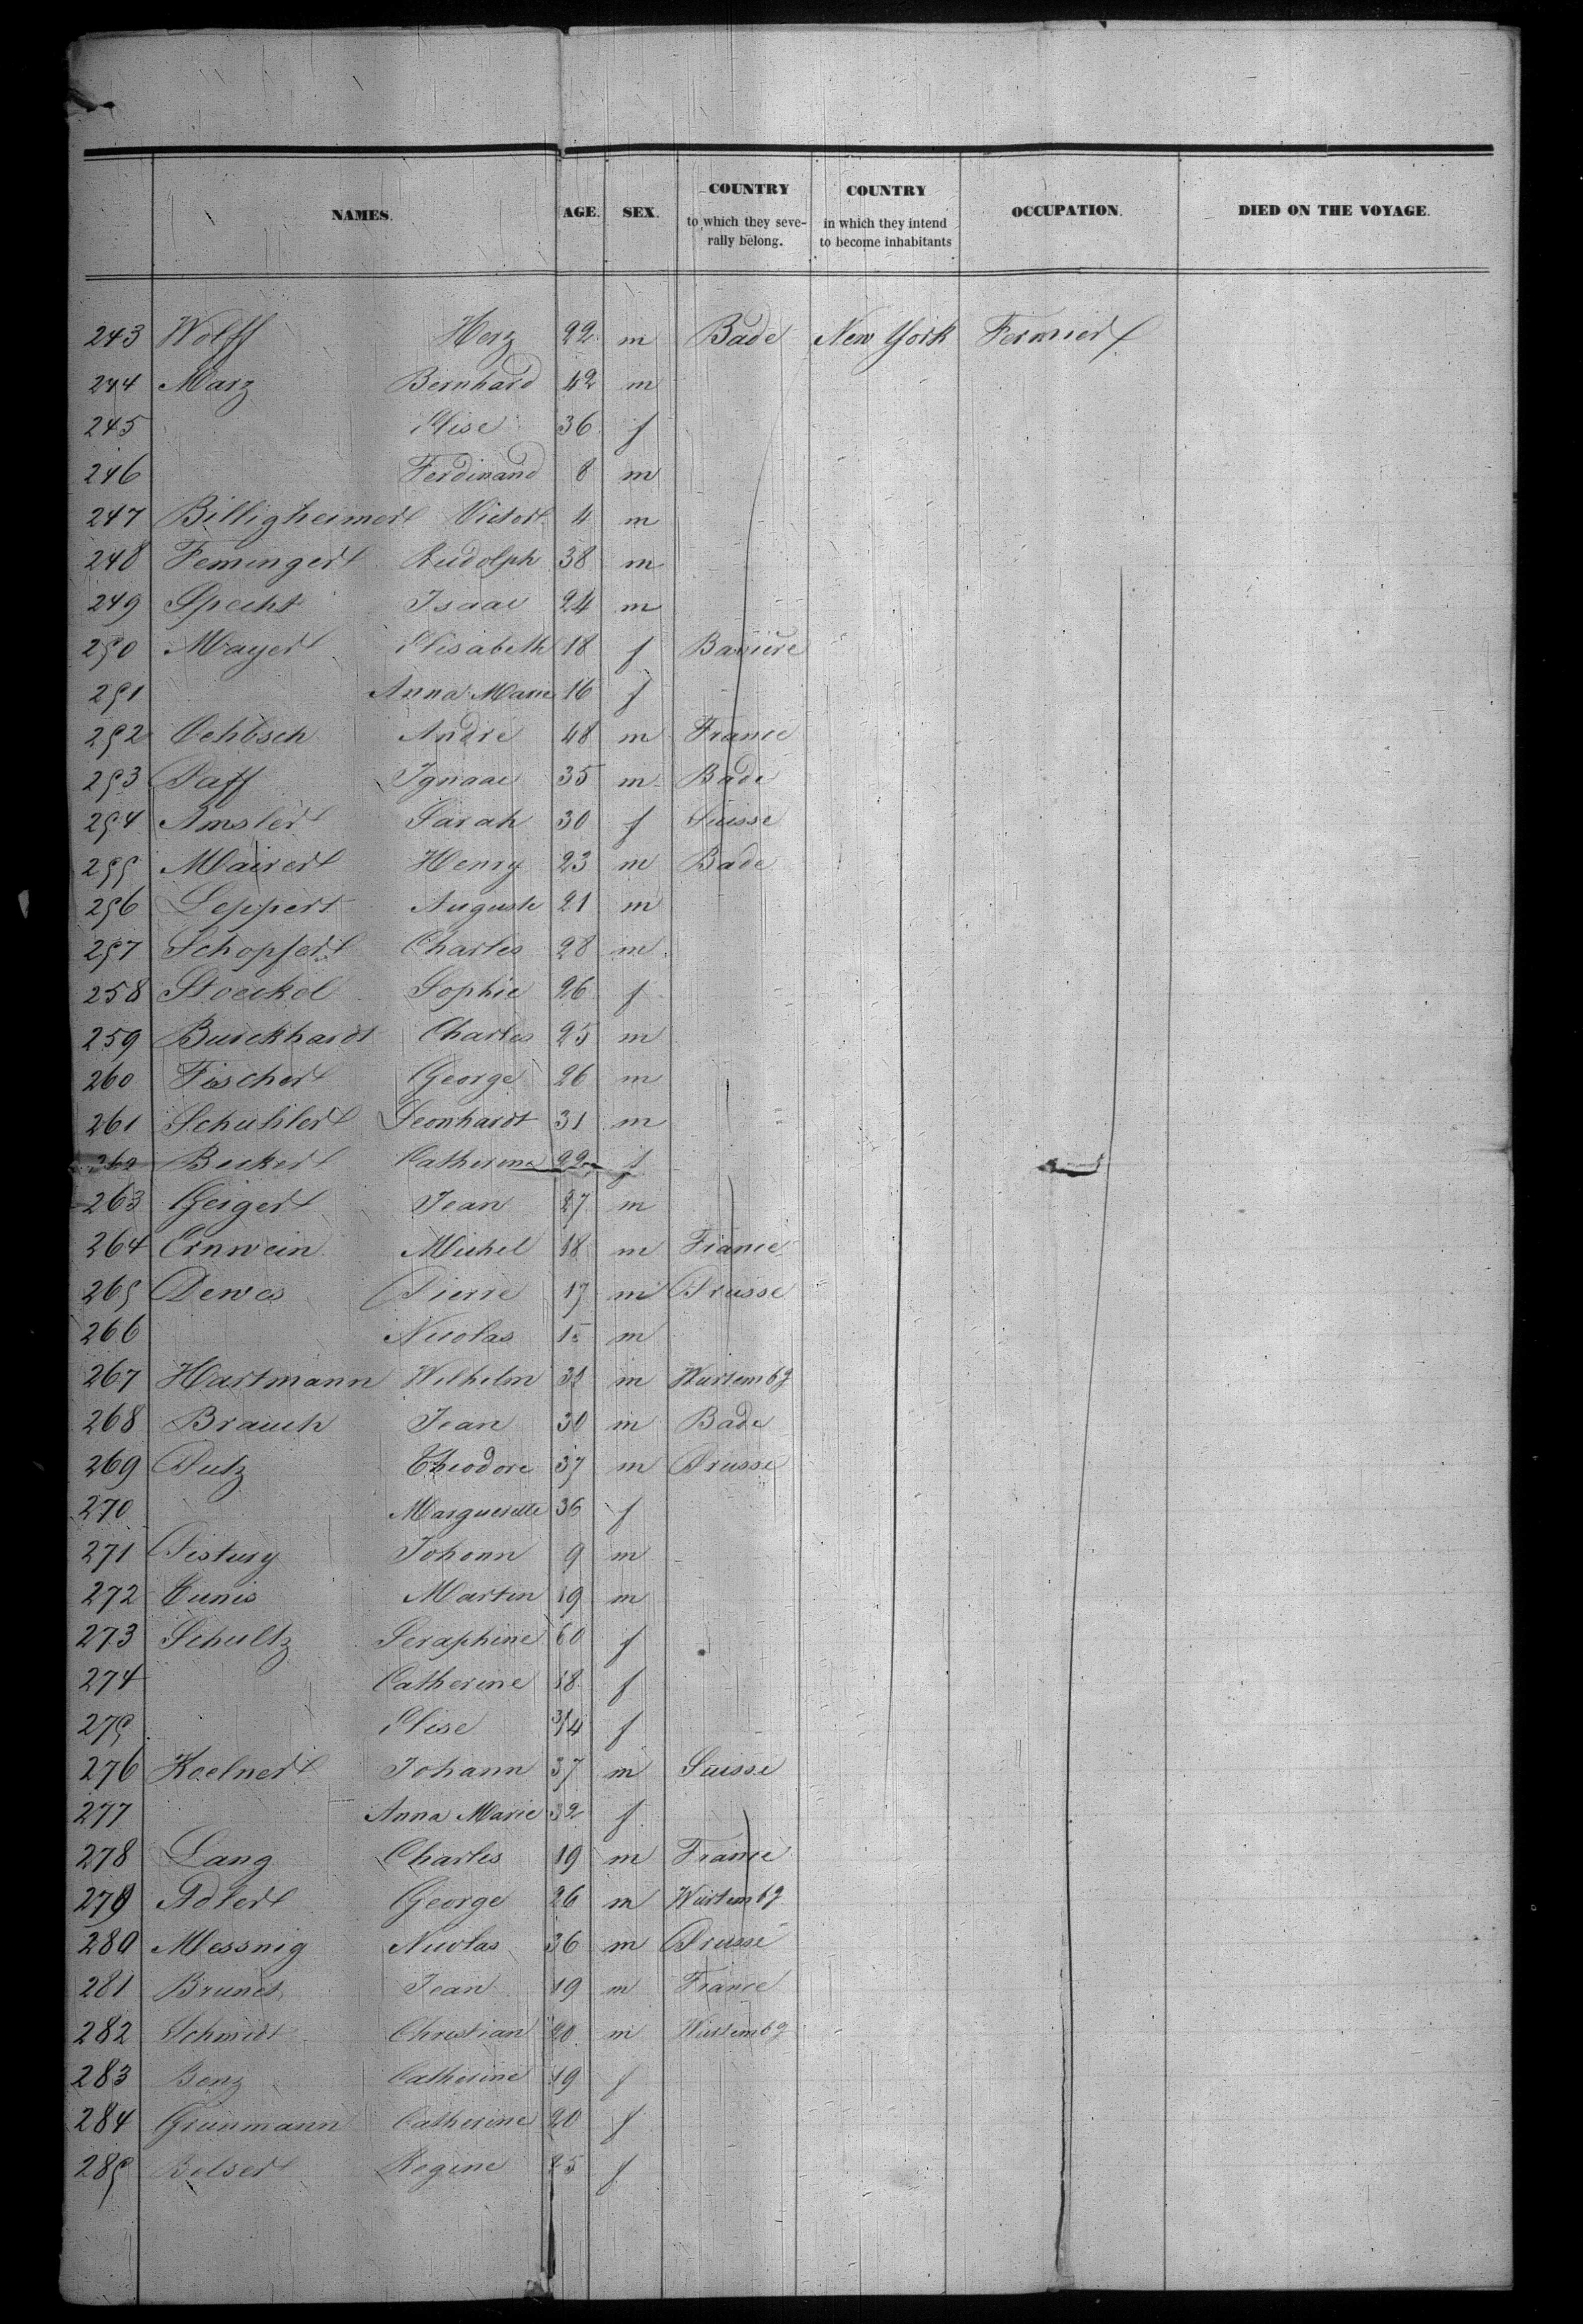 NAMES. AGE. SEX. COUNTRY to which they severally belong. COUNTRY in which they intend to become inhabitants OCCUPATION. DIED ON THE VOYAGE.
243 Wolff Herz 22 m Bade New York Fermier
244 Marz Bernhard 42 m
245 Elise 36 f
246 Ferdinand 8 m
247 Billigheimer Victor 4 m
248 Feminger Rudolph 38 m
249 Specht Isaac 24 m
250 Mayer Elisabeth 18 f Baviere
251 Anna Marie 16 f
252 Oehbsch André 48 m France
253 Paff Ignaac 35 m Bade
254 Amsler Sarah 30 f Suisse
255 Mairer Henry 23 m Bade
256 Leppert Auguste 21 m
257 Schopfer Charles 28 m
258 Stoeckel Sophie 26 f
259 Burckhardt Charles 25 m
260 Fischer George 26 m
261 Schuhler Leonhardt 31 m
262 Becker Catherine 22 f
263 Geiger Jean 27 m
264 Ernwein Michel 18 m France
265 Dewes Pierre 17 m Prusse
266 Nicolas 15 m
267 Hartmann Wilhelm 32 m Wurtembg
268 Brauch Jean 30 m Bade
269 Putz Theodore 37 m Prusse
270 Marguerite 36 f
271 Pistury Johann 9 m
272 Tunis Martin 19 m
273 Schultz Seraphine 60 f
274 Catherine 18 f
275 Elise 3/4 f
276 Koelner Johann 37 m Suisse
277 Anna Marie 32 f
278 Lang Charles 19 m France
279 Adler George 26 m Wurtembg
280 Messnig Nicolas 36 m Prusse
281 Brunet Jean 19 m France
282 Schmidt Christian 20 m Wurtembg
283 Benz Catherine 19 f
284 Grunmann Catherine 20 f
285 Belser Regine 25 f